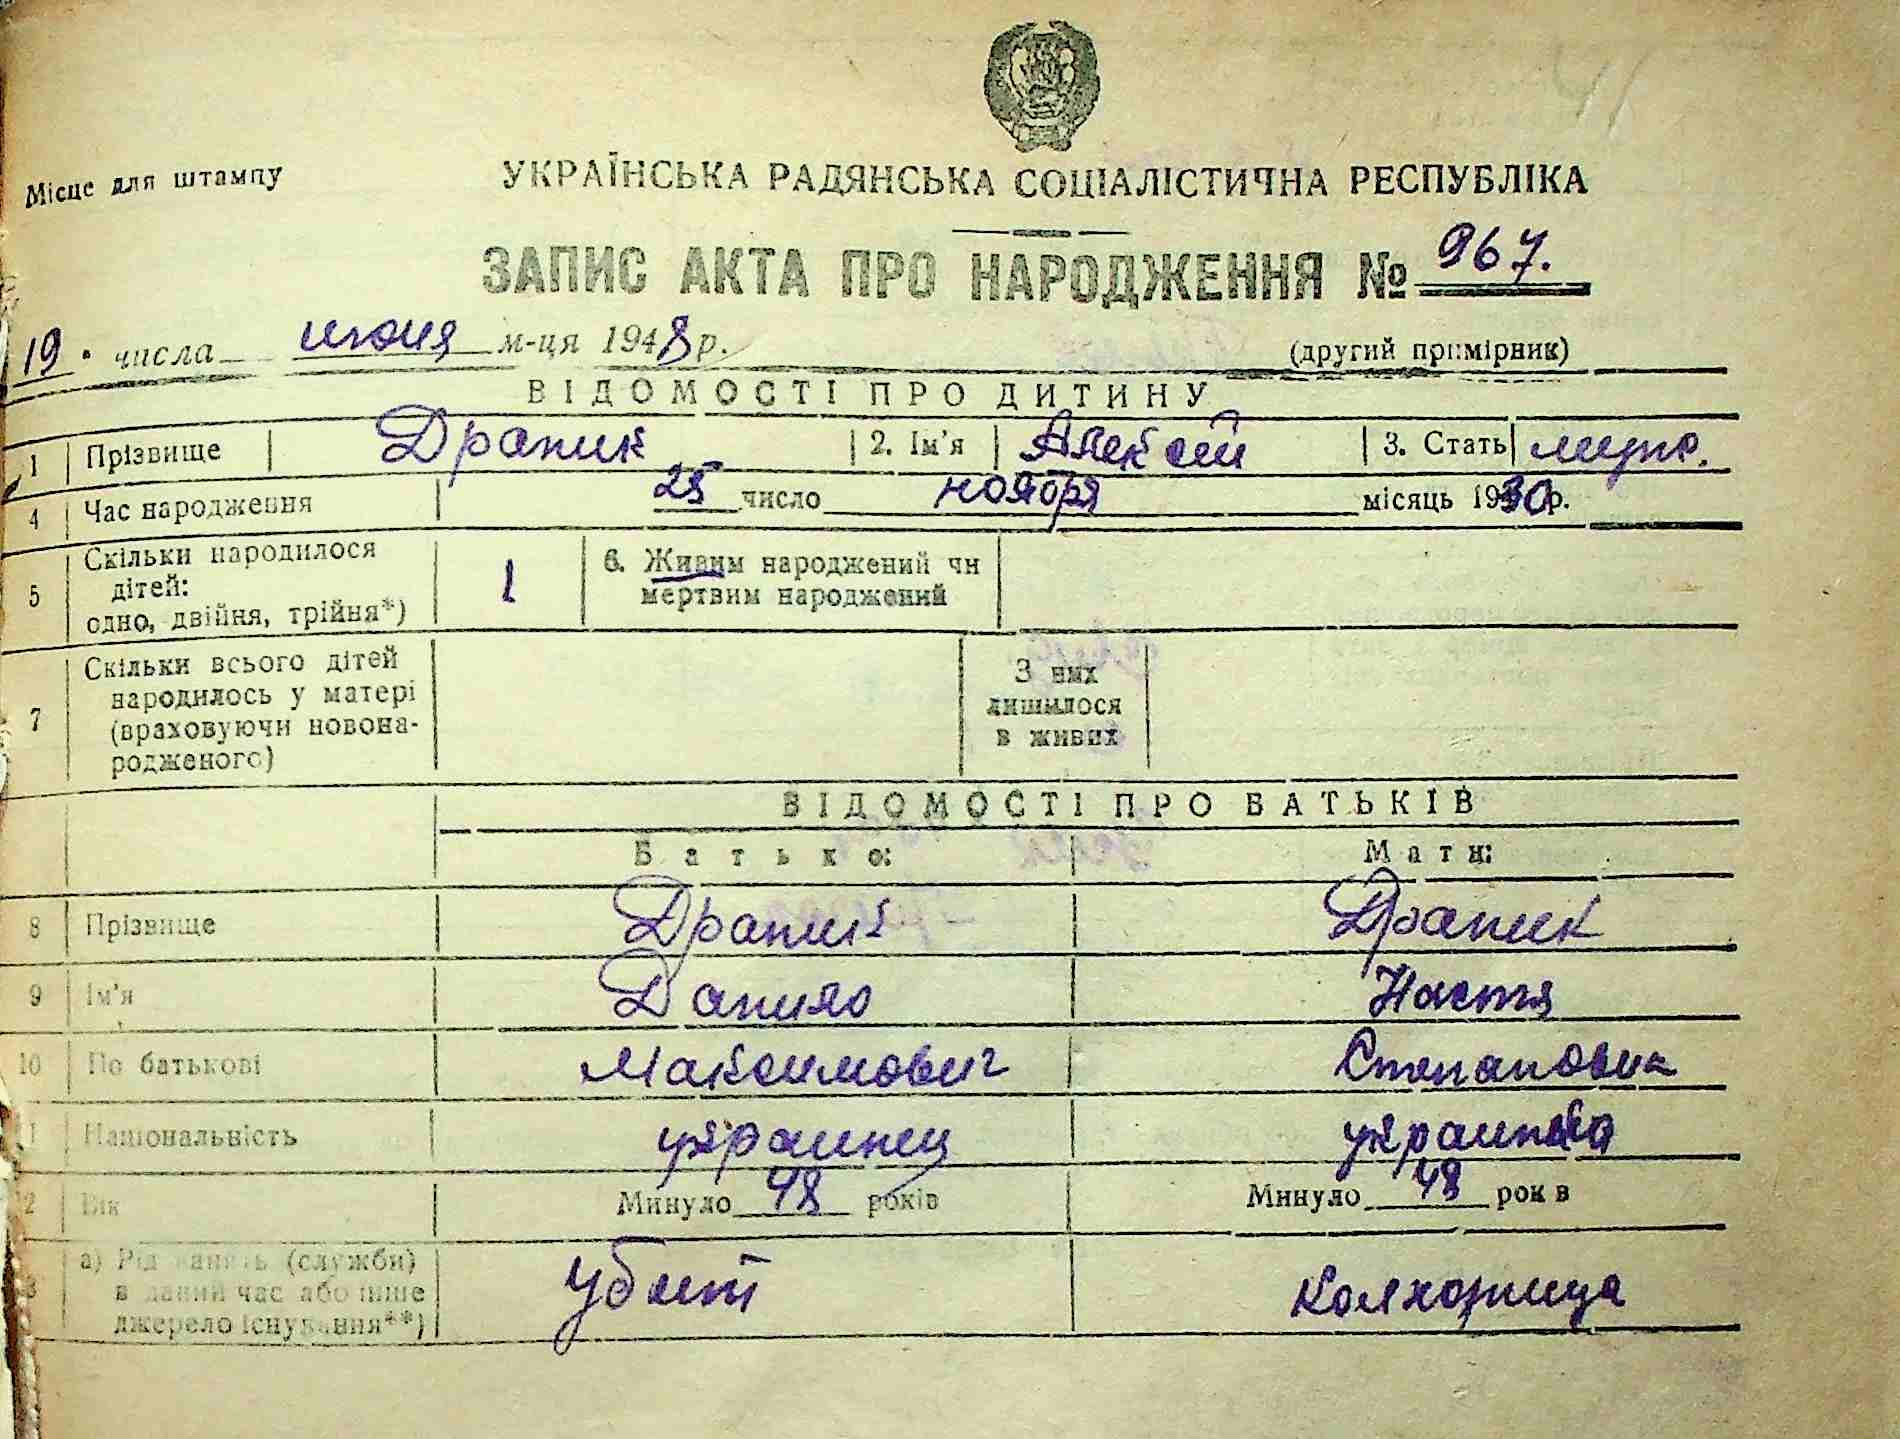 Місце для штампу
УКРАЇНСЬКА РАДЯНСЬКА СОЦІАЛІСТИЧНА РЕСПУБЛІКА
ЗАПИС АКТА ПРО НАРОДЖЕННЯ № 967.
19 числа июня м-ця 1948 р.
(другий примірник)
ВІДОМОСТІ ПРО ДИТИНУ
1 Прізвище Драпик 2. Ім'я Алексей 3. Стать муж.
4 Час народження 25 число ноября місяць 1930 р.
5 Скільки народилося дітей: одно, двійня, трійня*) 1 6. Живим народжений чи мертвим народжений
7 Скільки всього дітей народилось у матері (враховуючи новонародженого) З них лишилося в живих
ВІДОМОСТІ ПРО БАТЬКІВ
Батько: Мати:
8 Прізвище Драпик Драпик
9 Ім'я Данило Настя
10 По батькові Максимович Степановна
11 Національність украинец украинка
12 Вік Минуло 48 років Минуло 48 років
13 а) Рід занять (служби) в даний час або інше джерело існування**) Убит колхозница